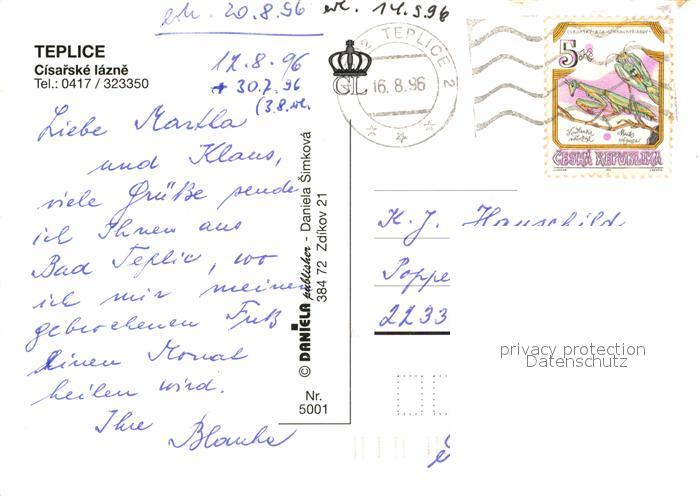 erh. 20.8.96 erl. 14.9.96
TEPLICE
Císařské lázně
Tel.: 0417 / 323350
12.8.96
+ 30.7.96
(3.8.erl.
Liebe Martha
und Klaus,
viele Grüße sende
ich Ihnen aus
Bad Teplic, wo
ich mir meinen
gebrochenen Fuß
einen Monat
heilen wird.
Ihre Blanka
© DANIELA publisher - Daniela Šimková
384 72 Zdíkov 21
Nr.
5001
GL
TEPLICE 2
16.8.96
5 Kč
ČESKÁ REPUBLIKA
K. J. Hauschild
Poppe
2233
privacy protection
Datenschutz